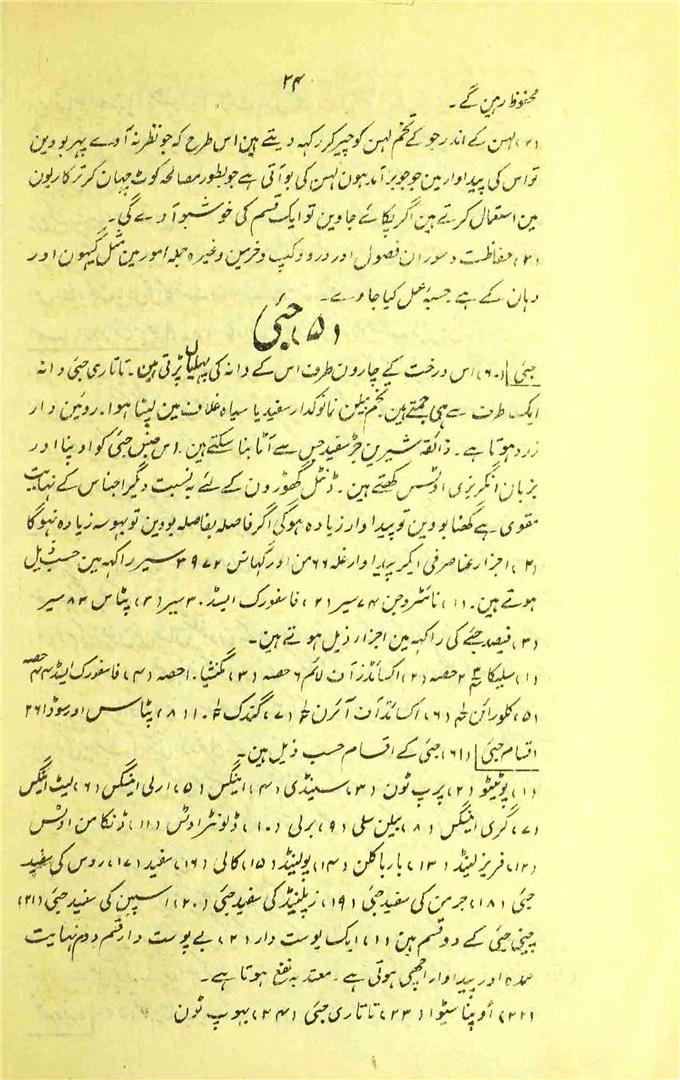 ۲۴
محفوظ رہین گے۔
(۲) لہسن کے اندر جو کے تخم لہسن کو چیر کر رکہہ دیتے ہین اس طرح کہ جو نظر نہ آوے پہر بووین
تو اس کی پیداوار مین جو جو برآمد ہون لہسن کی بو آتی ہے جو بطور مصالحہ کوٹ چہان کر ترکاریون
مین استعمال کرتے ہین اگر پکائے جاوین تو ایک قسم کی خوشبو آوے گی۔
(۳) حفاظت دوران فصول اور درو وکپ وخرمن وغیرہ جملہ امور مین مثل گیہون اور
دہان کے ہے حسبہٗ عمل کیا جاوے۔
(۵) جئی
جئی (۶۰) اس درخت کے چارون طرف اس کے دانہ کی پہلیاں پڑتی ہین۔ تاتاری جئی دانہ
ایک طرف سے ہی جمتے ہین تخم بیلن نما نوکدار سفید یا سیاہ غلاف مین لپٹا ہوا۔ روئین دار
زرد ہوتا ہے۔ ذائقہ شیرین جڑ سفید جس سے آٹا بنا سکتے ہین۔ اس جنس جئی کو اوینا اور
بزبان انگریزی اوٹس کہتے ہین۔ ڈنٹل گھوڑون کے لئے بہ نسبت دیگر اجناس کے نہایت
مقوی ہے گھنا بووین تو پیداوار زیادہ ہوگی اگر فاصلہ بفاصلہ بووین تو بہوسہ زیادہ نہوگا
(۲) اجزار عناصر فی ایکر پیداوار غلہ ۶۶ من اور گہاس ۳۹۷۲ سیر راکہہ مین حسب ذیل
ہوتے ہین۔ (۱) نائٹروجن ۷۴ سیر (۲) فاسفورک ایسڈ ۳۰ سیر (۳) پٹاس ۸۳ سیر
(۳) فیصد جئے کی راکہہ مین اجزار ذیل ہوتے ہین۔
(۱) سلیکا حصہ (۲) اکسائڈز آف لائم ۶ حصہ (۳) مگنشیا ۱۰ حصہ (۴) فاسفورک ایسڈ حصہ
(۵) کلورائن (۶) اکسائڈ آف آئرن (۷) گندک (۸) پٹاسس اور سوڈا ۲۶
اقسام جئی (۶۱) جئی کے اقسام حسب ذیل ہین۔
(۱) پوٹیٹو (۲) ہوپ ٹون (۳) سینڈی (۴) اینگس (۵) ارلی اینگس (۶) لیٹ اینگس
(۷) گری اینگس (۸) بیلن سلی (۹) برلی (۱۰) ڈیونٹر اوٹس (۱۱) ڈنکا من اوٹس
(۱۲) فریزلینڈ (۱۳) بارباکلن (۱۴) پولینڈ (۱۵) کالی (۱۶) سفید (۱۷) روس کی سفید
جئی (۱۸) جرمن کی سفید جئی (۱۹) زیلینڈ کی سفید جئی (۲۰) اسپین کی سفید جئی (۲۱)
چینی جئی کے دو قسم ہین (۱) ایک پوست دار (۲) بے پوست دار قسم دوم نہایت
عمدہ اور پیداوار اچھی ہوتی ہے۔ معتد بہ نفع ہوتا ہے۔
(۲۲) اوینا سٹوا (۲۳) تاتاری جئی (۲۴) ہوپ ٹون